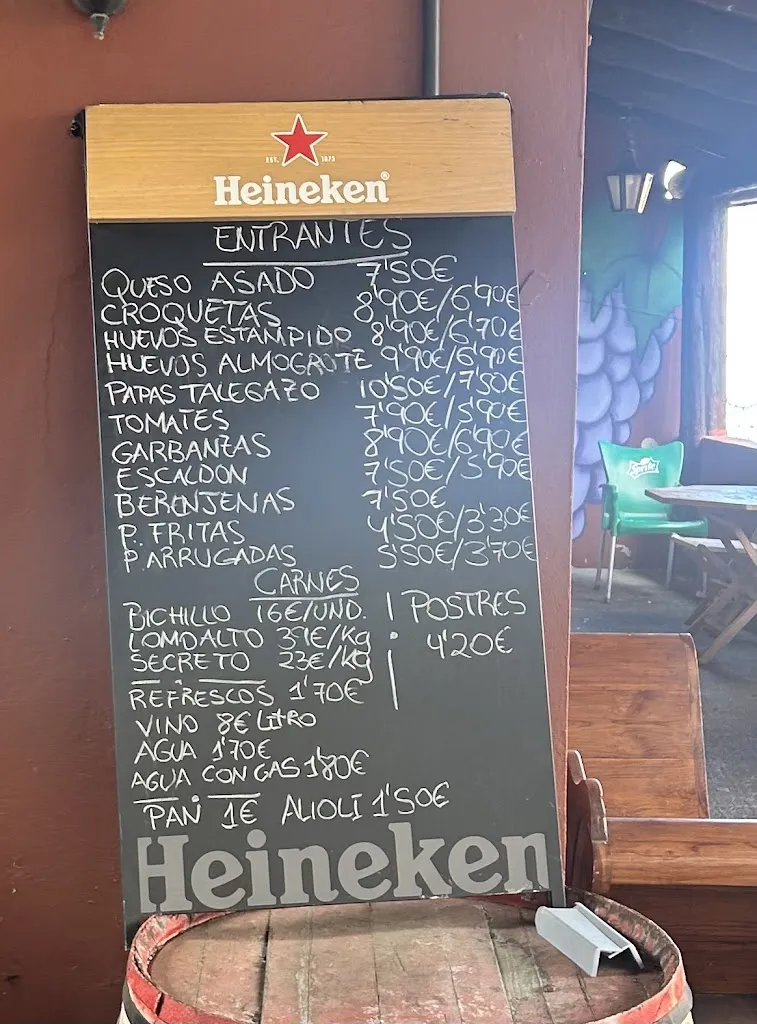 EST. 1873
Heineken®
ENTRANTES
QUESO ASADO 7'50€
CROQUETAS 8'90€/6'90€
HUEVOS ESTAMPIDO 8'90€/6'70€
HUEVOS ALMOGROTE 9'90€/6'90€
PAPAS TALEGAZO 10'50€/7'50€
TOMATES 7'90€/5'90€
GARBANZAS 8'90€/6'90€
ESCALDON 7'50€/5'90€
BERENJENAS 7'50€
P. FRITAS 4'50€/3'30€
P. ARRUGADAS 5'50€/3'70€
CARNES
BICHILLO 16€/UND.
LOMO ALTO 39€/Kg
SECRETO 23€/Kg
POSTRES
4'20€
REFRESCOS 1'70€
VINO 8€ LITRO
AGUA 1'70€
AGUA CON GAS 1'80€
PAN 1€ ALIOLI 1'50€
Heineken
Sprite